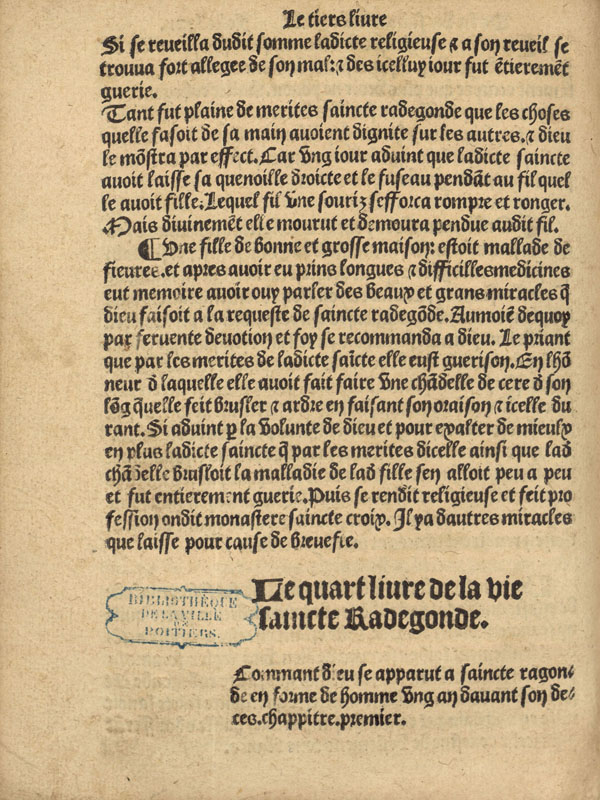 Le tiers liure
Si se reueilla dudit somme ladicte religieuse ⁊ a son reueil se
trouua fort allegee de son mal: ⁊ des icelluy iour fut ẽtieremẽt
guerie.
Tant fut plaine de merites saincte radegonde que les choses
quelle fasoit de sa main auoient dignite sur les autres. ⁊ dieu
le mõstra par effect. Car vng iour aduint que ladicte saincte
auoit laisse sa quenoille droicte et le fuseau pendãt au fil quel
le auoit fille. Lequel fil vne souriz sefforca rompre et ronger.
Mais diuinemẽt elle mourut et demoura pendue audit fil.
¶ Vne fille de bonne et grosse maison: estoit mallade de
fieures. et apres auoir eu prins longues ⁊ difficilles medicines
eut memoire auoir ouy parler des beaux et grans miracles q̃
dieu faisoit a la requeste de saincte radegõde. Aumoiẽ dequoy
par feruente deuotion et foy se recommanda a dieu. Le priant
que par les merites de ladicte saĩcte elle eust guerison. En lhõ
neur d̃ laquelle elle auoit fait faire vne chãdelle de cere d̃ son
lõg q̃uelle feit brusler ⁊ ardre en faisant son oraison ⁊ icelle du
rant. Si aduint p̲ la volunte de dieu et pour exalter de mieulx
en plus ladicte saincte q̃ par les merites dicelle ainsi que lad
chãdelle brusloit la malladie de lad fille sen alloit peu a peu
et fut entierement guerie. Puis se rendit religieuse et feit pro
fession ondit monastere saincte croix. Il ya dautres miracles
que laisse pour cause de breuefte.
Le quart liure de la vie
saincte Radegonde.
BIBLIOTHÈQUE
DE LA VILLE
DE
POITIERS.
Commant dieu se apparut a saincte ragon⸗
de en forme de homme vng an dauant son de⸗
ces. chappitre. premier.